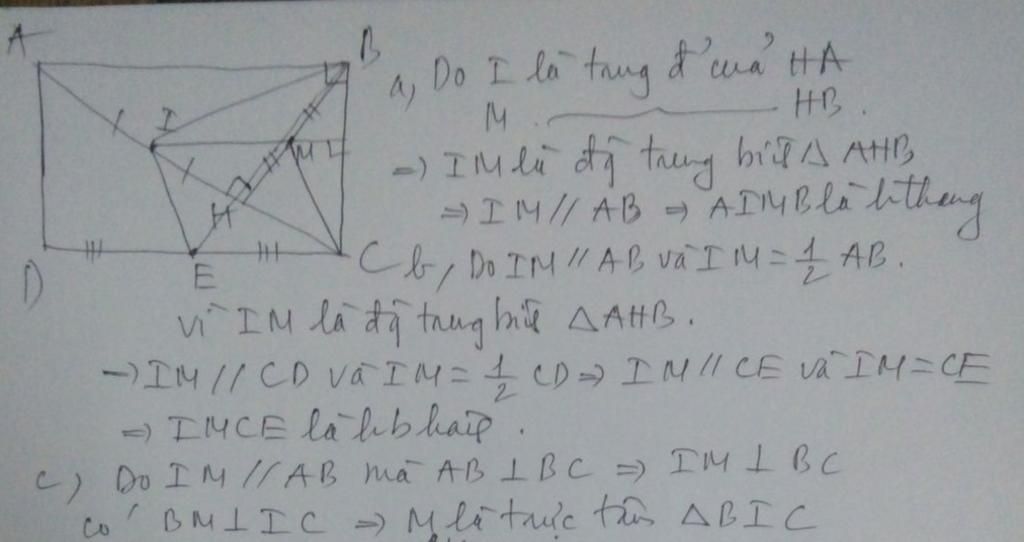 A
B
I
M
H
D
E
C
a, Do I là trung đ' của HA
M HB.
=> IM là đg trung bình △ AHB
=> IM // AB => AIMB là h thang
b, Do IM // AB và IM = 1/2 AB.
vì IM là đg trung bình △AHB.
→ IM // CD và IM = 1/2 CD => IM // CE và IM = CE
=> IMCE là hb hàh.
c) Do IM // AB mà AB ⊥ BC => IM ⊥ BC
có BM ⊥ IC => M là trực tâm △BIC